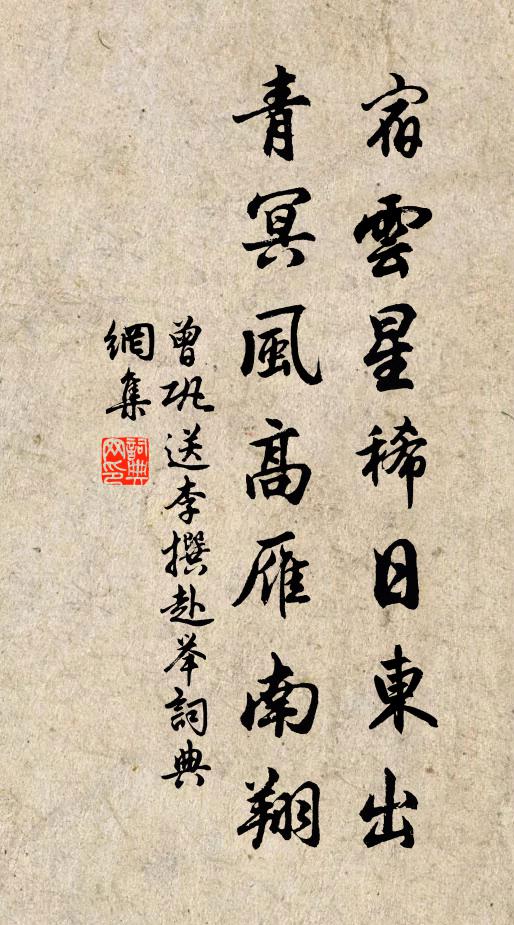 宿雲星稀日東出
青冥風高雁南翔
曾巩送李撰赴举詞典
網集
詞典網印